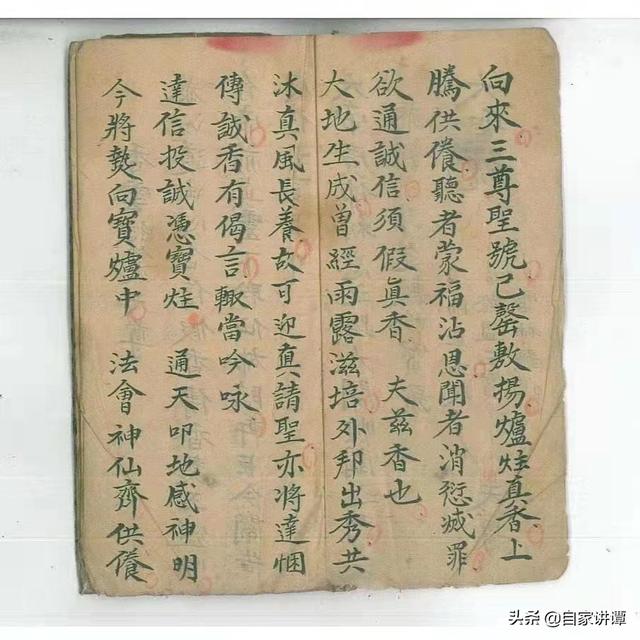 向來三尊聖號已罄敷揚爐炷真香上
騰供養聽者蒙福沾恩聞者消愆滅罪
欲通誠信須假真香　夫茲香也
大地生成曾經雨露滋培外邦出秀共
沐真風長養故可迎真請聖亦將達悃
傳誠香有偈言輙當吟咏
達信投誠憑寶炷　通天叩地感神明
今將爇向寶爐中　法會神仙齊供養
头条 @自家讲谭